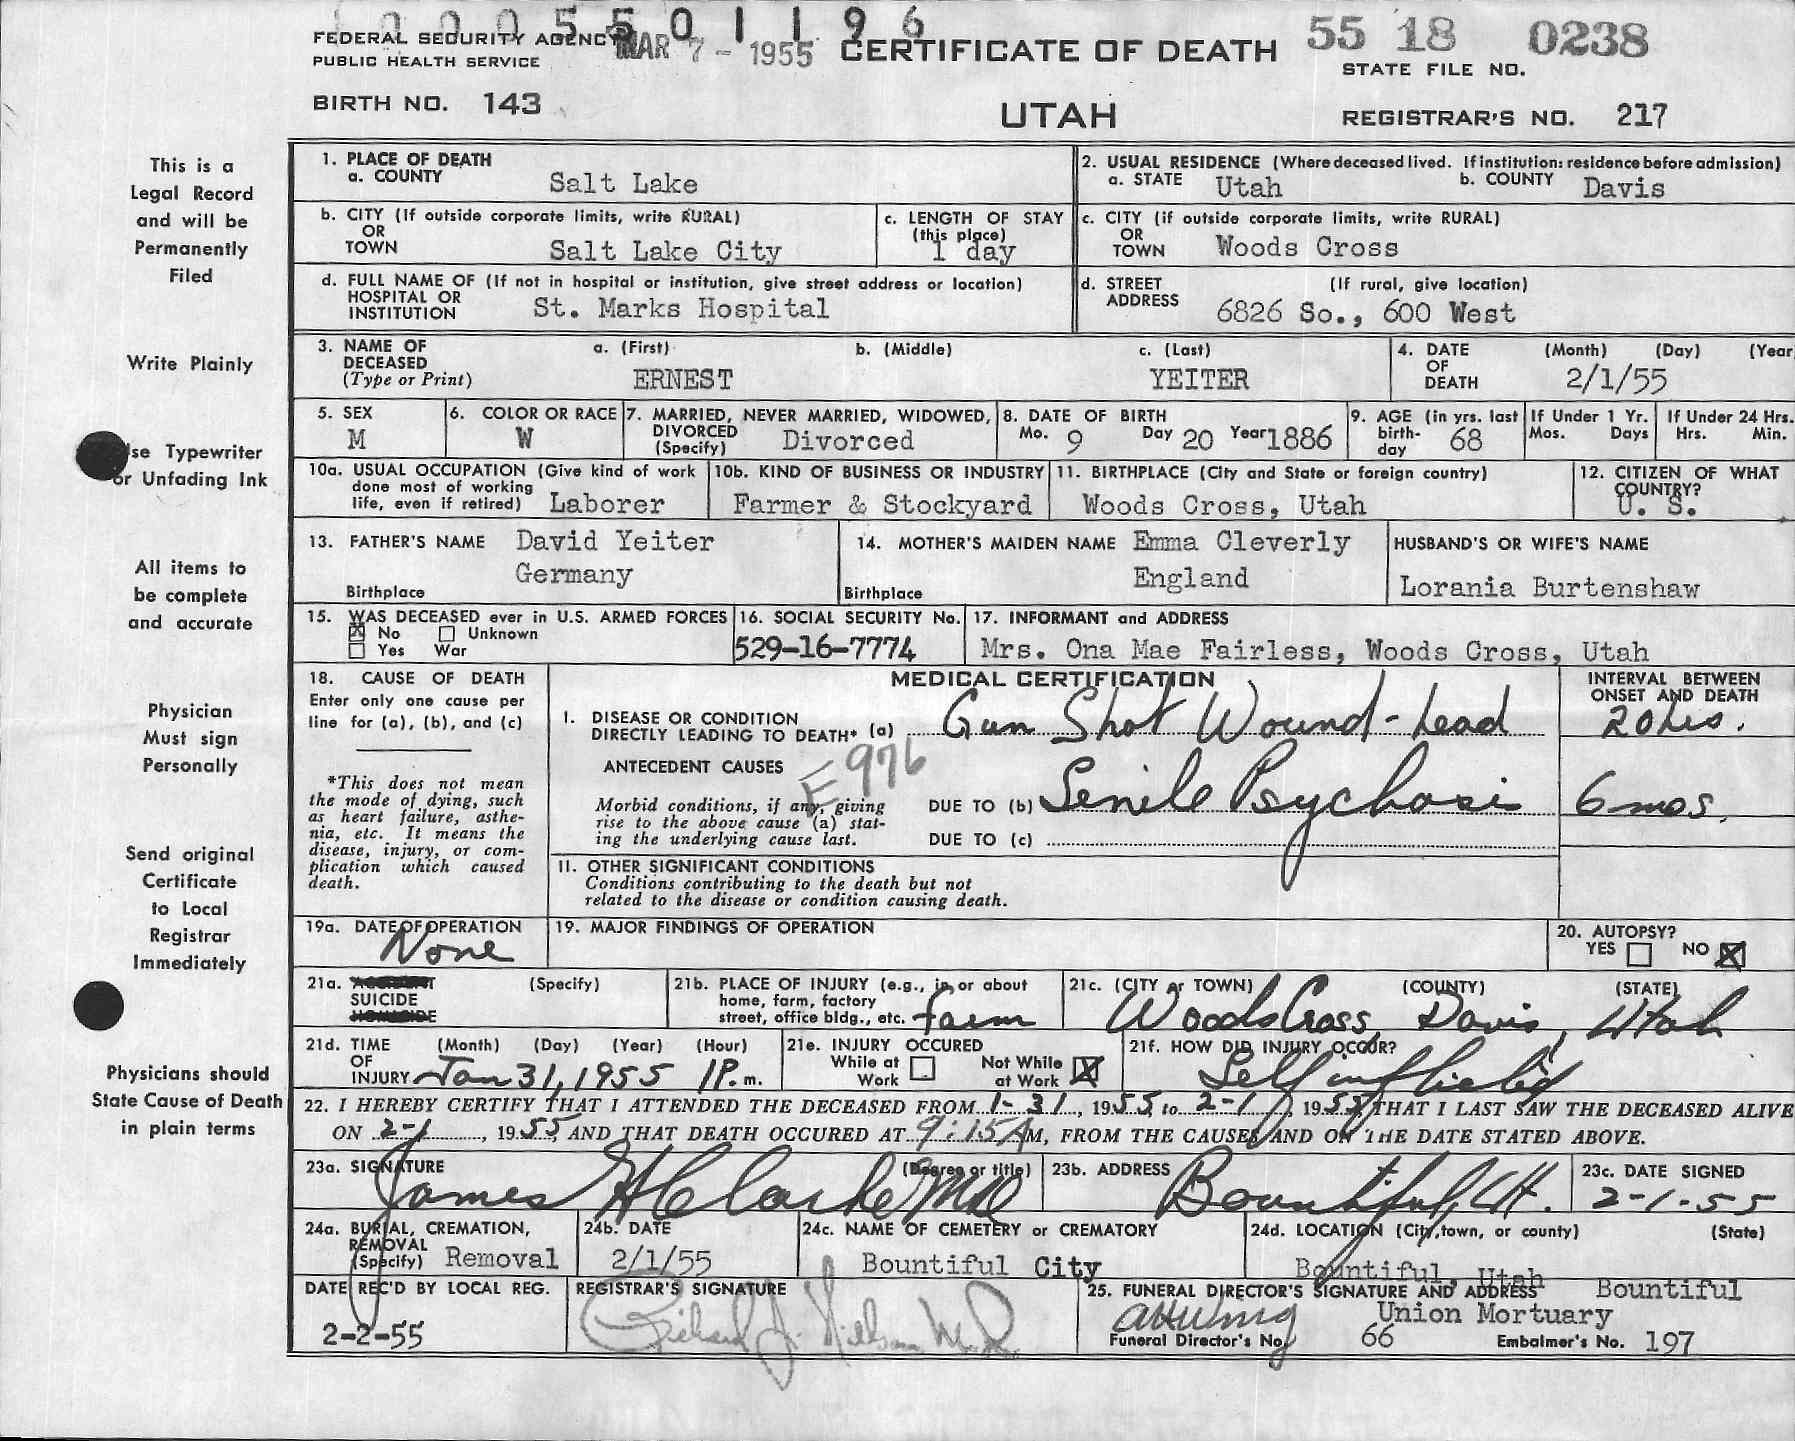 0005501196
FEDERAL SECURITY AGENCY MAR 7 - 1955 CERTIFICATE OF DEATH 55 18 0238
PUBLIC HEALTH SERVICE STATE FILE NO.
BIRTH NO. 143 UTAH REGISTRAR'S NO. 217
This is a
Legal Record
and will be
Permanently
Filed
Write Plainly
se Typewriter
or Unfading Ink
All items to
be complete
and accurate
Physician
Must sign
Personally
Send original
Certificate
to Local
Registrar
Immediately
Physicians should
State Cause of Death
in plain terms
1. PLACE OF DEATH
a. COUNTY Salt Lake
2. USUAL RESIDENCE (Where deceased lived. If institution: residence before admission)
a. STATE Utah b. COUNTY Davis
b. CITY (If outside corporate limits, write RURAL)
OR
TOWN Salt Lake City
c. LENGTH OF STAY
(this place)
1 day
c. CITY (if outside corporate limits, write RURAL)
OR
TOWN Woods Cross
d. FULL NAME OF (If not in hospital or institution, give street address or location)
HOSPITAL OR
INSTITUTION St. Marks Hospital
d. STREET (If rural, give location)
ADDRESS 6826 So., 600 West
3. NAME OF a. (First) b. (Middle) c. (Last)
DECEASED
(Type or Print) ERNEST YEITER
4. DATE (Month) (Day) (Year
OF
DEATH 2/1/55
5. SEX
M
6. COLOR OR RACE
W
7. MARRIED, NEVER MARRIED, WIDOWED,
DIVORCED
(Specify) Divorced
8. DATE OF BIRTH
Mo. 9 Day 20 Year 1886
9. AGE (in yrs. last
birth-
day 68
If Under 1 Yr.
Mos. Days
If Under 24 Hrs.
Hrs. Min.
10a. USUAL OCCUPATION (Give kind of work
done most of working
life, even if retired) Laborer
10b. KIND OF BUSINESS OR INDUSTRY
Farmer & Stockyard
11. BIRTHPLACE (City and State or foreign country)
Woods Cross, Utah
12. CITIZEN OF WHAT
COUNTRY?
U. S.
13. FATHER'S NAME David Yeiter
Germany
Birthplace
14. MOTHER'S MAIDEN NAME Emma Cleverly
England
Birthplace
HUSBAND'S OR WIFE'S NAME
Lorania Burtenshaw
15. WAS DECEASED ever in U.S. ARMED FORCES
No Unknown
Yes War
16. SOCIAL SECURITY No.
529-16-7774
17. INFORMANT and ADDRESS
Mrs. Ona Mae Fairless, Woods Cross, Utah
18. CAUSE OF DEATH
Enter only one cause per
line for (a), (b), and (c)
*This does not mean
the mode of dying, such
as heart failure, asthe-
nia, etc. It means the
disease, injury, or com-
plication which caused
death.
MEDICAL CERTIFICATION
I. DISEASE OR CONDITION
DIRECTLY LEADING TO DEATH* (a) Gun Shot Wound - head
ANTECEDENT CAUSES E976
Morbid conditions, if any, giving
rise to the above cause (a) stat-
ing the underlying cause last.
DUE TO (b) Senile Psychosis
DUE TO (c)
11. OTHER SIGNIFICANT CONDITIONS
Conditions contributing to the death but not
related to the disease or condition causing death.
INTERVAL BETWEEN
ONSET AND DEATH
20 hrs.
6 mos.
19a. DATE OF OPERATION
None
19. MAJOR FINDINGS OF OPERATION
20. AUTOPSY?
YES NO
21a. ACCIDENT (Specify)
SUICIDE
HOMICIDE
21b. PLACE OF INJURY (e.g., in or about
home, farm, factory
street, office bldg., etc. farm
21c. (CITY or TOWN) (COUNTY) (STATE)
Woods Cross, Davis, Utah
21d. TIME (Month) (Day) (Year) (Hour)
OF
INJURY Jan 31, 1955 1 P. m.
21e. INJURY OCCURED
While at Not While
Work at Work
21f. HOW DID INJURY OCCUR?
Self inflicted
22. I HEREBY CERTIFY THAT I ATTENDED THE DECEASED FROM 1-31, 1955 to 2-1, 1955, THAT I LAST SAW THE DECEASED ALIVE
ON 2-1, 1955, AND THAT DEATH OCCURED AT 9:15 AM, FROM THE CAUSES AND ON THE DATE STATED ABOVE.
23a. SIGNATURE (Degree or title)
James H Clarke MD
23b. ADDRESS
Bountiful, Ut.
23c. DATE SIGNED
2-1-55
24a. BURIAL, CREMATION,
REMOVAL
(Specify) Removal
24b. DATE
2/1/55
24c. NAME OF CEMETERY or CREMATORY
Bountiful City
24d. LOCATION (City, town, or county) (State)
Bountiful, Utah
DATE REC'D BY LOCAL REG.
2-2-55
REGISTRAR'S SIGNATURE
Richard J. Nielson M.D.
25. FUNERAL DIRECTOR'S SIGNATURE AND ADDRESS Bountiful
Union Mortuary
Funeral Director's No. 66 Embalmer's No. 197